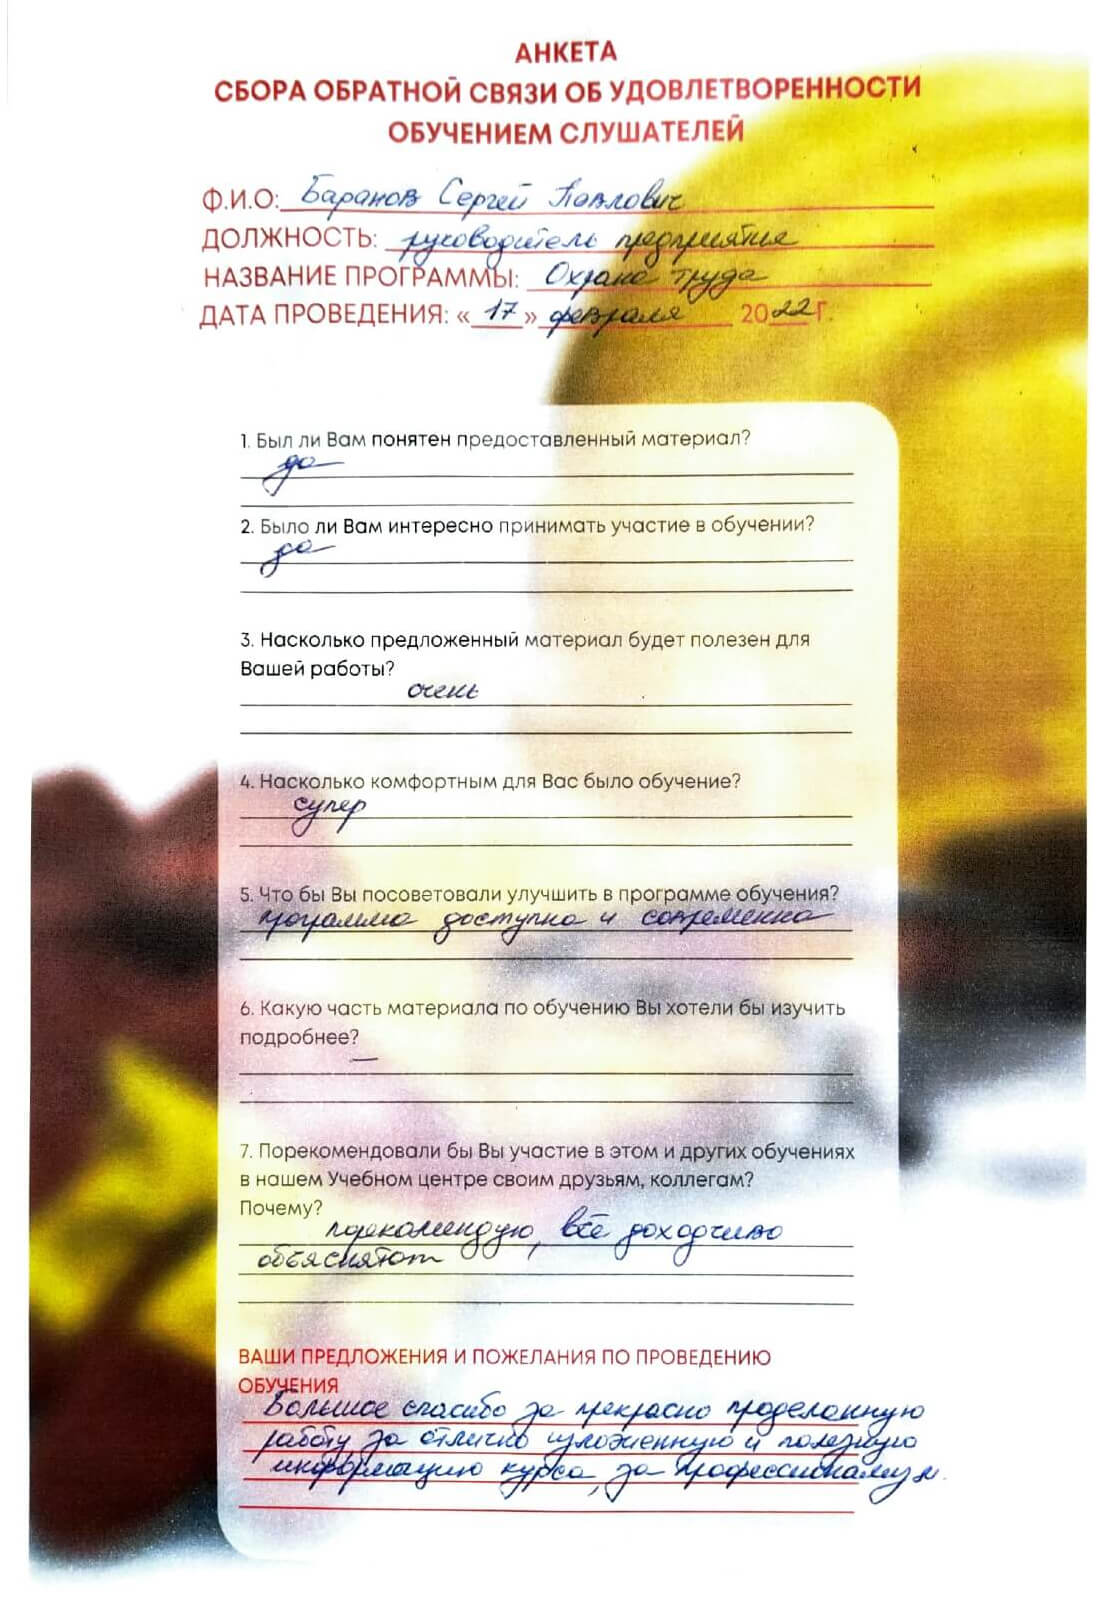 АНКЕТА
СБОРА ОБРАТНОЙ СВЯЗИ ОБ УДОВЛЕТВОРЕННОСТИ
ОБУЧЕНИЕМ СЛУШАТЕЛЕЙ
Ф.И.О: Баранов Сергей Павлович
ДОЛЖНОСТЬ: руководитель предприятия
НАЗВАНИЕ ПРОГРАММЫ: Охрана труда
ДАТА ПРОВЕДЕНИЯ: «17» февраля 2022 г.
1. Был ли Вам понятен предоставленный материал?
да
2. Было ли Вам интересно принимать участие в обучении?
да
3. Насколько предложенный материал будет полезен для
Вашей работы?
очень
4. Насколько комфортным для Вас было обучение?
супер
5. Что бы Вы посоветовали улучшить в программе обучения?
программа доступна и современна
6. Какую часть материала по обучению Вы хотели бы изучить
подробнее?
—
7. Порекомендовали бы Вы участие в этом и других обучениях
в нашем Учебном центре своим друзьям, коллегам?
Почему?
порекомендую, всё доходчиво
объяснятот
ВАШИ ПРЕДЛОЖЕНИЯ И ПОЖЕЛАНИЯ ПО ПРОВЕДЕНИЮ
ОБУЧЕНИЯ
Большое спасибо за прекрасно проделанную
работу за отлично изложенную и полезную
информацию курса, за профессионализм.